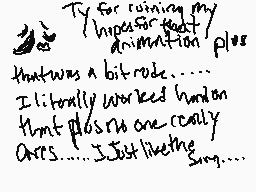 Ty for ruining my
hopes for that
animation plus
that was a bit rude.....
I literally worked hard on
that plus no one really
cares..... I Just like the
song....